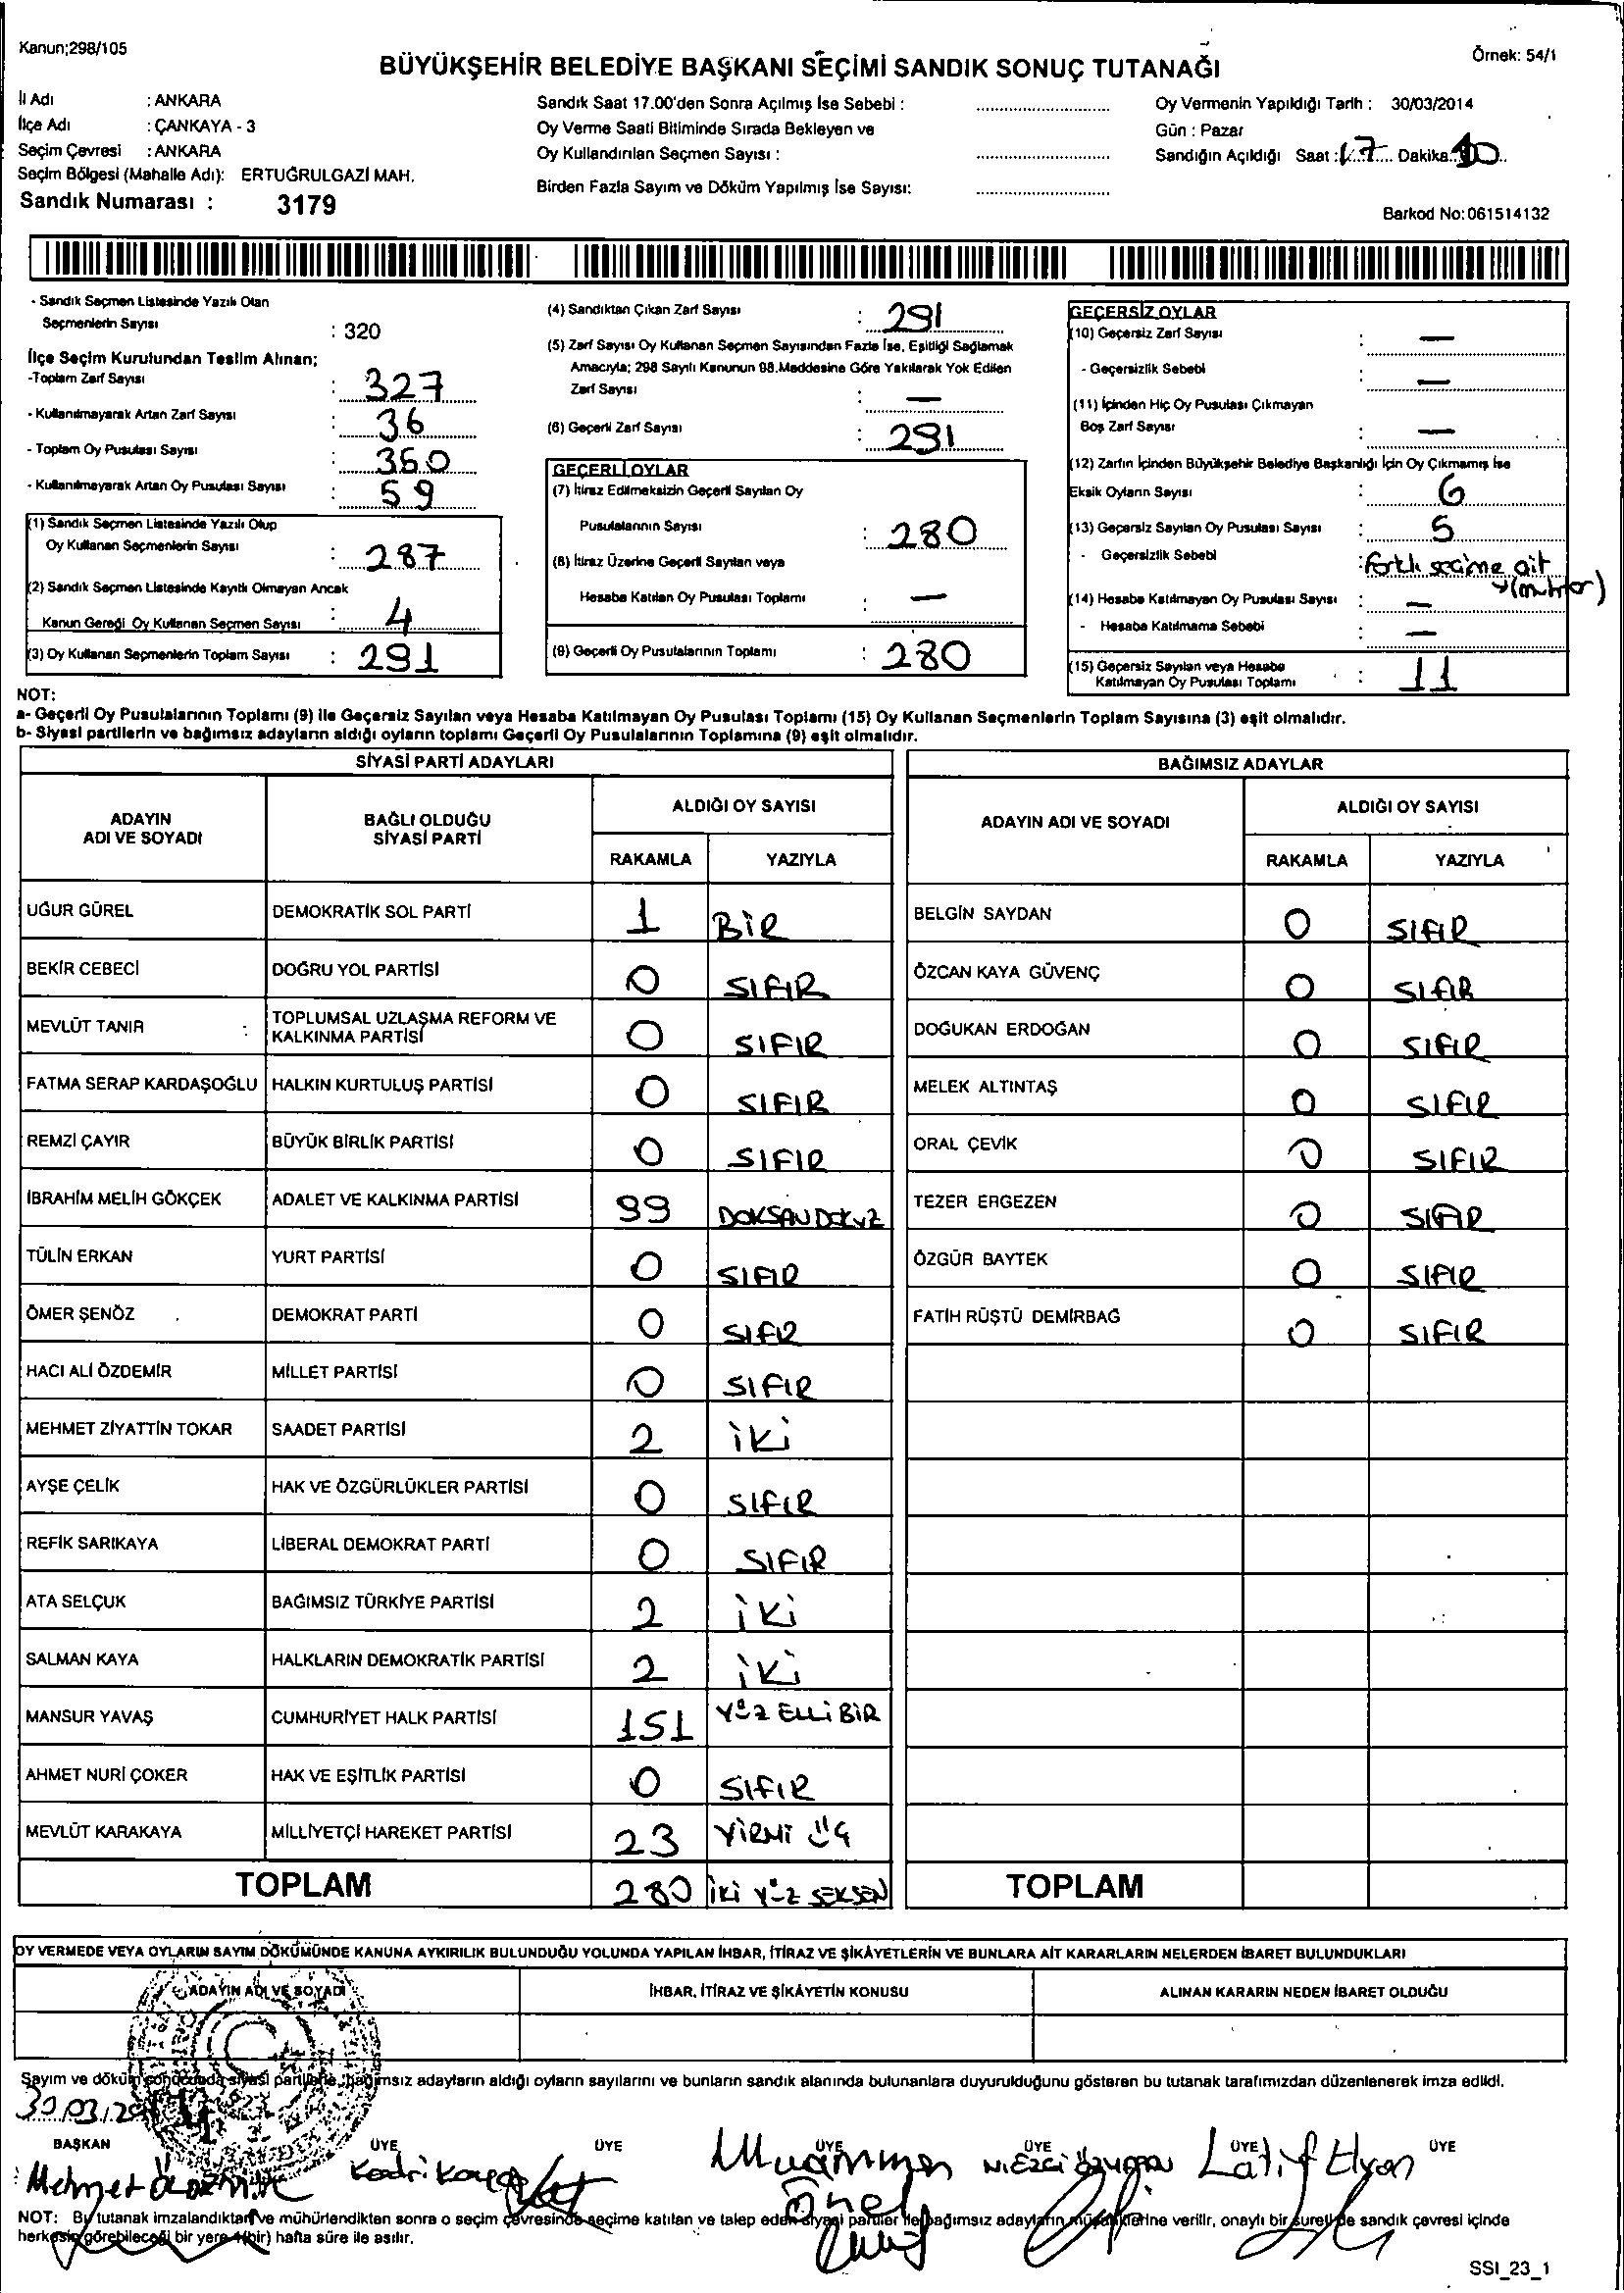 Kanun;298/105
Örnek: 54/1
BÜYÜKŞEHİR BELEDİYE BAŞKANI SEÇİMİ SANDIK SONUÇ TUTANAĞI
İl Adı : ANKARA
İlçe Adı : ÇANKAYA - 3
Seçim Çevresi : ANKARA
Seçim Bölgesi (Mahalle Adı): ERTUĞRULGAZİ MAH.
Sandık Numarası : 3179
Sandık Saat 17.00'den Sonra Açılmış İse Sebebi :
Oy Verme Saati Bitiminde Sırada Bekleyen ve
Oy Kullandırılan Seçmen Sayısı :
Birden Fazla Sayım ve Döküm Yapılmış İse Sayısı:
Oy Vermenin Yapıldığı Tarih : 30/03/2014
Gün : Pazar
Sandığın Açıldığı Saat : 17 Dakika 10
Barkod No:061514132
- Sandık Seçmen Listesinde Yazılı Olan
Seçmenlerin Sayısı : 320
İlçe Seçim Kurulundan Teslim Alınan;
-Toplam Zarf Sayısı : 327
- Kullanılmayarak Artan Zarf Sayısı : 36
- Toplam Oy Pusulası Sayısı : 350
- Kullanılmayarak Artan Oy Pusulası Sayısı : 59
(1) Sandık Seçmen Listesinde Yazılı Olup
Oy Kullanan Seçmenlerin Sayısı : 287
(2) Sandık Seçmen Listesinde Kayıtlı Olmayan Ancak
Kanun Gereği Oy Kullanan Seçmen Sayısı : 4
(3) Oy Kullanan Seçmenlerin Toplam Sayısı : 291
(4) Sandıktan Çıkan Zarf Sayısı : 291
(5) Zarf Sayısı Oy Kullanan Seçmen Sayısından Fazla İse, Eşitliği Sağlamak
Amacıyla; 298 Sayılı Kanunun 98.Maddesine Göre Yakılarak Yok Edilen
Zarf Sayısı : —
(6) Geçerli Zarf Sayısı : 291
GEÇERLİ OYLAR
(7) İtiraz Edilmeksizin Geçerli Sayılan Oy
Pusulalarının Sayısı : 280
(8) İtiraz Üzerine Geçerli Sayılan veya
Hesaba Katılan Oy Pusulası Toplamı : —
(9) Geçerli Oy Pusulalarının Toplamı : 280
GEÇERSİZ OYLAR
(10) Geçersiz Zarf Sayısı : —
- Geçersizlik Sebebi : —
(11) İçinden Hiç Oy Pusulası Çıkmayan
Boş Zarf Sayısı : —
(12) Zarfın İçinden Büyükşehir Belediye Başkanlığı İçin Oy Çıkmamış İse
Eksik Oyların Sayısı : 6
(13) Geçersiz Sayılan Oy Pusulası Sayısı : 5
- Geçersizlik Sebebi : farklı seçime ait
(14) Hesaba Katılmayan Oy Pusulası Sayısı : —
- Hesaba Katılmama Sebebi : —
(15) Geçersiz Sayılan veya Hesaba
Katılmayan Oy Pusulası Toplamı : 11
NOT:
a- Geçerli Oy Pusulalarının Toplamı (9) ile Geçersiz Sayılan veya Hesaba Katılmayan Oy Pusulası Toplamı (15) Oy Kullanan Seçmenlerin Toplam Sayısına (3) eşit olmalıdır.
b- Siyasi partilerin ve bağımsız adayların aldığı oyların toplamı Geçerli Oy Pusulalarının Toplamına (9) eşit olmalıdır.
SİYASİ PARTİ ADAYLARI
ADAYIN ADI VE SOYADI BAĞLI OLDUĞU SİYASİ PARTİ ALDIĞI OY SAYISI
RAKAMLA YAZIYLA
UĞUR GÜREL DEMOKRATİK SOL PARTİ 1 BİR
BEKİR CEBECİ DOĞRU YOL PARTİSİ 0 SIFIR
MEVLÜT TANIR TOPLUMSAL UZLAŞMA REFORM VE
KALKINMA PARTİSİ 0 SIFIR
FATMA SERAP KARDAŞOĞLU HALKIN KURTULUŞ PARTİSİ 0 SIFIR
REMZİ ÇAYIR BÜYÜK BİRLİK PARTİSİ 0 SIFIR
İBRAHİM MELİH GÖKÇEK ADALET VE KALKINMA PARTİSİ 99 DOKSAN DOKUZ
TÜLİN ERKAN YURT PARTİSİ 0 SIFIR
ÖMER ŞENÖZ DEMOKRAT PARTİ 0 SIFIR
HACI ALİ ÖZDEMİR MİLLET PARTİSİ 0 SIFIR
MEHMET ZİYATTİN TOKAR SAADET PARTİSİ 2 İKİ
AYŞE ÇELİK HAK VE ÖZGÜRLÜKLER PARTİSİ 0 SIFIR
REFİK SARIKAYA LİBERAL DEMOKRAT PARTİ 0 SIFIR
ATA SELÇUK BAĞIMSIZ TÜRKİYE PARTİSİ 2 İKİ
SALMAN KAYA HALKLARIN DEMOKRATİK PARTİSİ 2 İKİ
MANSUR YAVAŞ CUMHURİYET HALK PARTİSİ 151 YÜZ ELLİ BİR
AHMET NURİ ÇOKER HAK VE EŞİTLİK PARTİSİ 0 SIFIR
MEVLÜT KARAKAYA MİLLİYETÇİ HAREKET PARTİSİ 23 YİRMİ ÜÇ
TOPLAM 280 İKİ YÜZ SEKSEN
BAĞIMSIZ ADAYLAR
ADAYIN ADI VE SOYADI ALDIĞI OY SAYISI
RAKAMLA YAZIYLA
BELGİN SAYDAN 0 SIFIR
ÖZCAN KAYA GÜVENÇ 0 SIFIR
DOĞUKAN ERDOĞAN 0 SIFIR
MELEK ALTINTAŞ 0 SIFIR
ORAL ÇEVİK 0 SIFIR
TEZER ERGEZEN 0 SIFIR
ÖZGÜR BAYTEK 0 SIFIR
FATİH RÜŞTÜ DEMİRBAĞ 0 SIFIR
TOPLAM
OY VERMEDE VEYA OYLARIN SAYIM DÖKÜMÜNDE KANUNA AYKIRILIK BULUNDUĞU YOLUNDA YAPILAN İHBAR, İTİRAZ VE ŞİKÂYETLERİN VE BUNLARA AİT KARARLARIN NELERDEN İBARET BULUNDUKLARI
ADAYIN ADI VE SOYADI İHBAR, İTİRAZ VE ŞİKÂYETİN KONUSU ALINAN KARARIN NEDEN İBARET OLDUĞU
Sayım ve döküm sonucunda siyasi partilerin, bağımsız adayların aldığı oyların sayılarını ve bunların sandık alanında bulunanlara duyurulduğunu gösteren bu tutanak tarafımızdan düzenlenerek imza edildi.
30.03.20
BAŞKAN ÜYE ÜYE ÜYE ÜYE ÜYE ÜYE
Mehmet Kadri Muammer Latif
Önel
NOT: Bu tutanak imzalandıktan ve mühürlendikten sonra o seçim çevresinde seçime katılan ve talep eden siyasi partiler ile bağımsız adayların müşahitlerine verilir, onaylı bir sureti de sandık çevresi içinde
herkesin görebileceği bir yere 1(bir) hafta süre ile asılır.
SSI_23_1